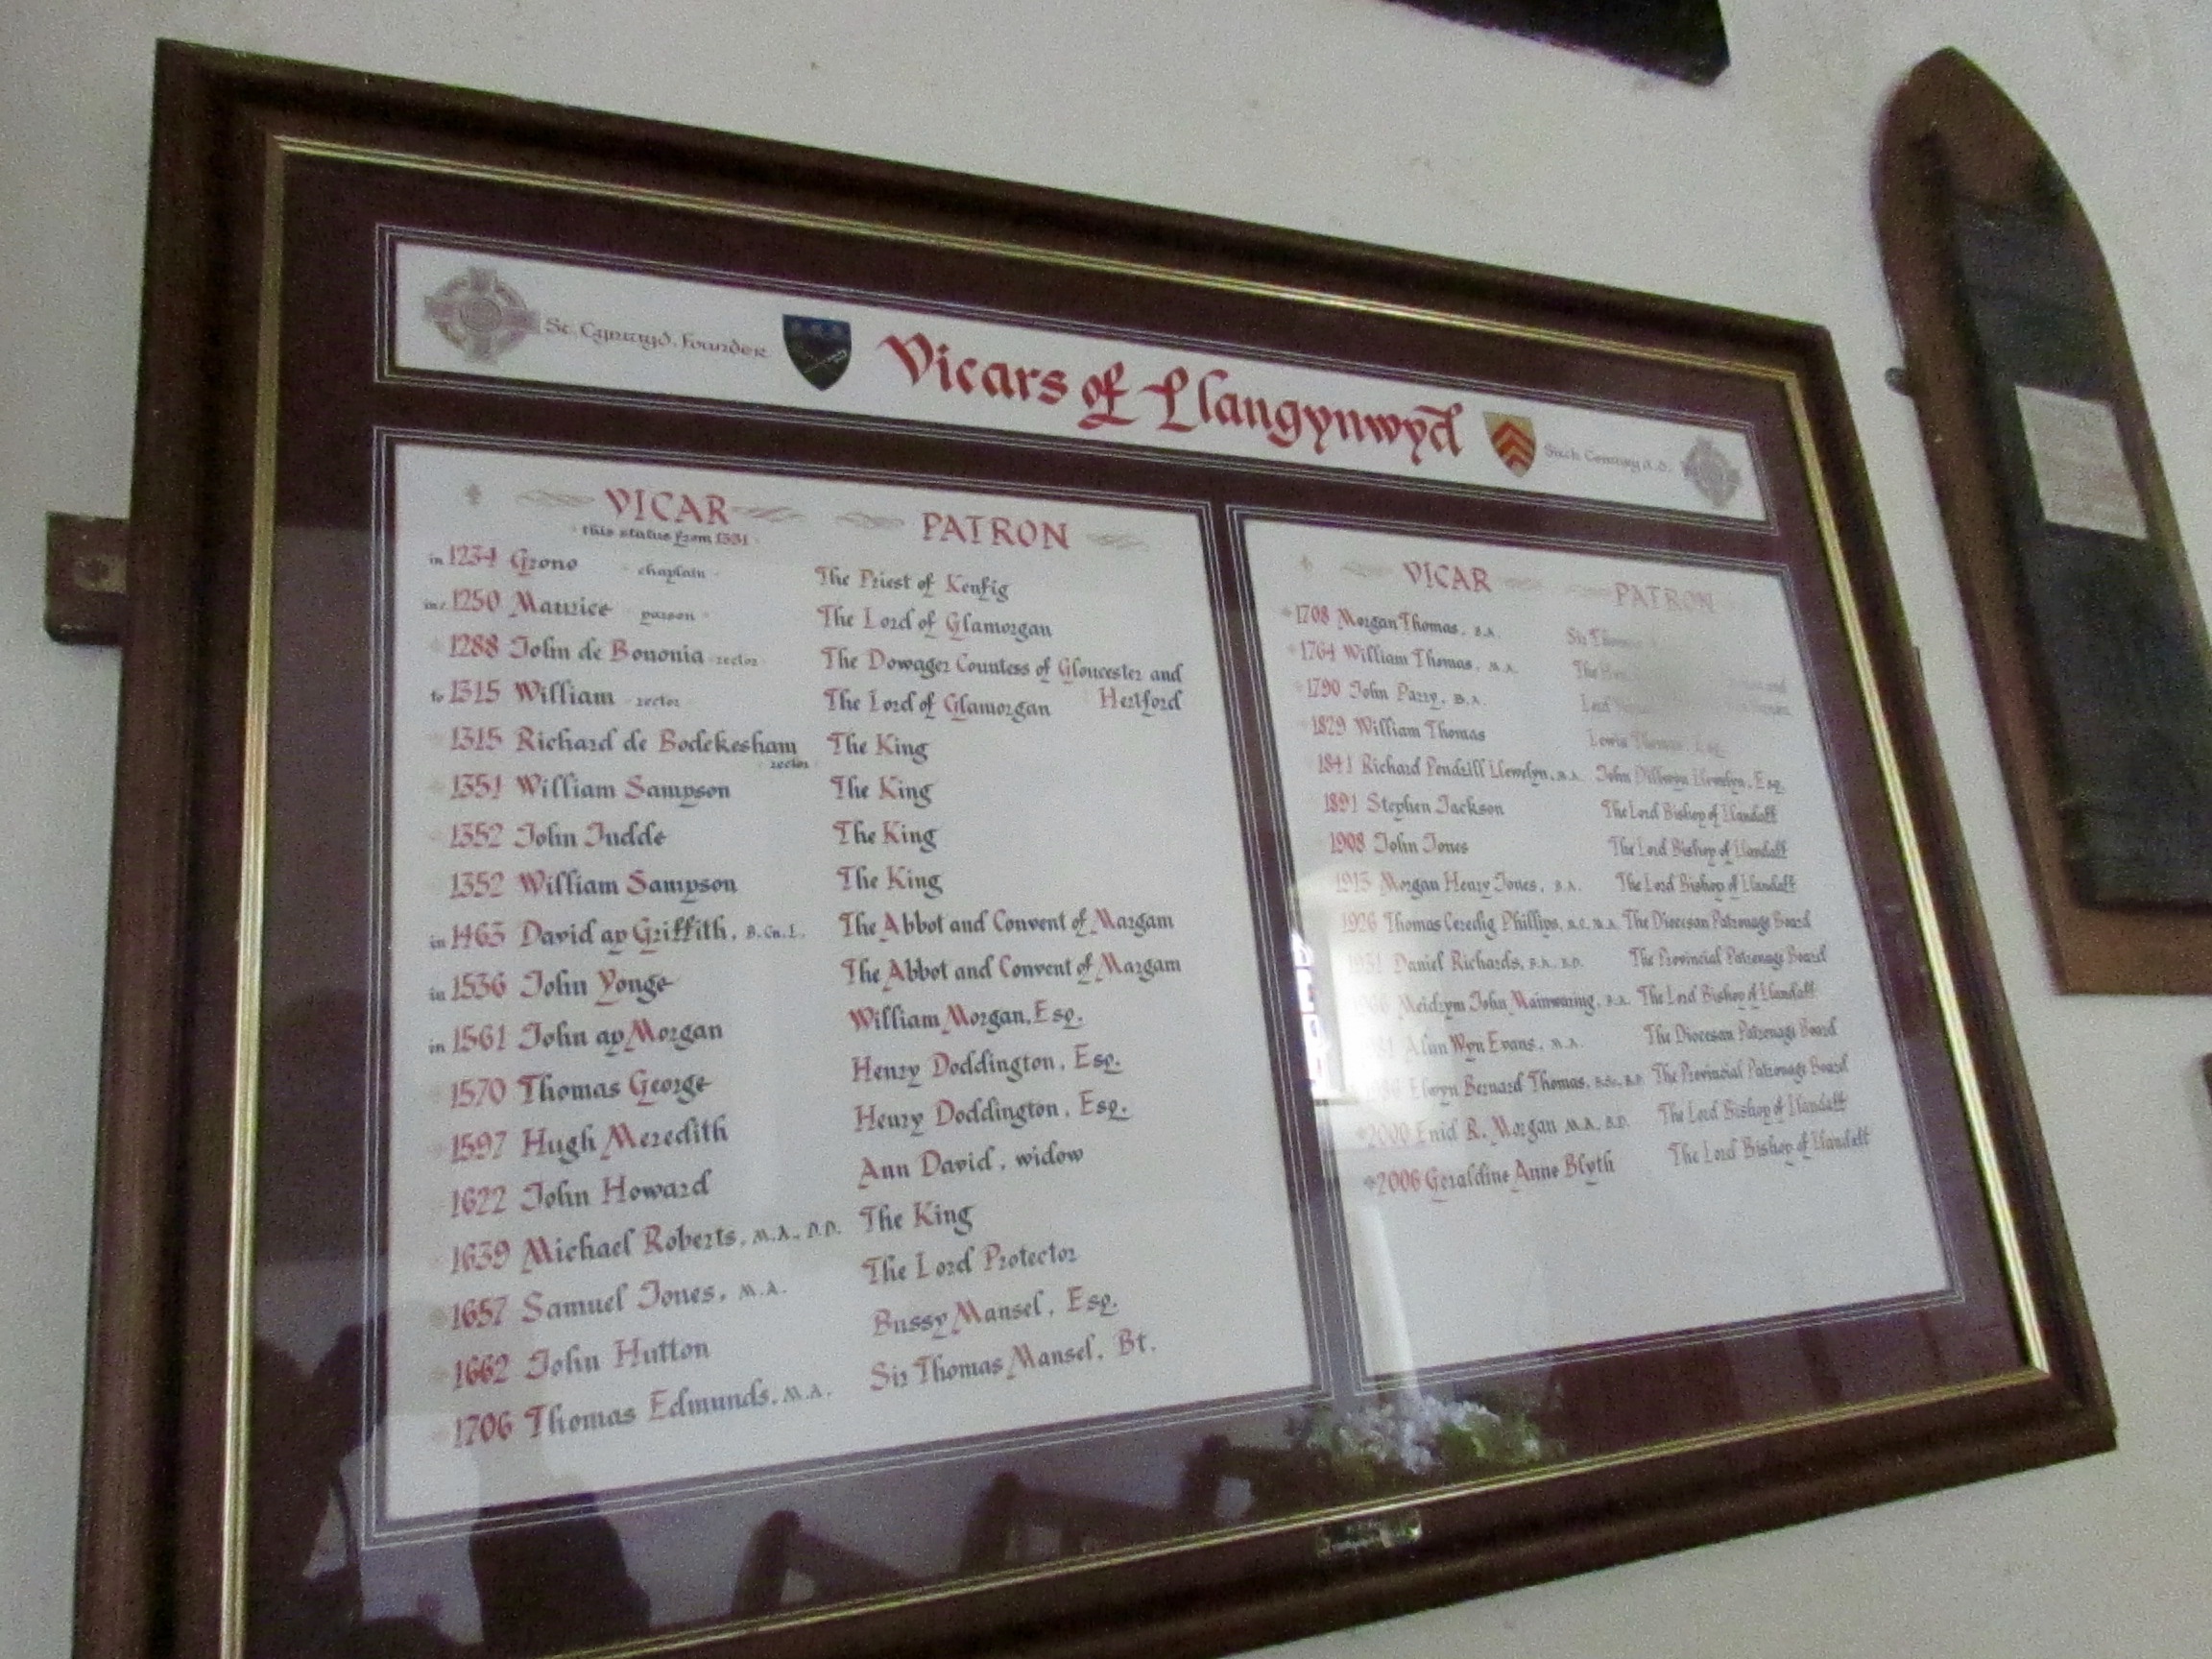 St. Cynwyd, Founder
Vicars of Llangynwyd
Sixth Century A.D.
VICAR PATRON
this status from 1351
in 1234 Grono chaplain The Priest of Kenfig
in c. 1250 Maurice parson The Lord of Glamorgan
1288 John de Bononia rector The Dowager Countess of Gloucester and
Hertford
to 1315 William rector The Lord of Glamorgan
1315 Richard de Bodekesham The King
rector
1351 William Sampson The King
1352 John Judde The King
1352 William Sampson The King
in 1463 David ap Griffith, B.Cn.L. The Abbot and Convent of Margam
in 1536 John Yonge The Abbot and Convent of Margam
in 1561 John ap Morgan William Morgan, Esq.
1570 Thomas George Henry Doddington, Esq.
1597 Hugh Meredith Henry Doddington, Esq.
1622 John Howard Ann David, widow
1639 Michael Roberts, M.A., D.D. The King
1657 Samuel Jones, M.A. The Lord Protector
1662 John Hutton Bussy Mansel, Esq.
1706 Thomas Edmunds, M.A. Sir Thomas Mansel, Bt.
VICAR PATRON
1708 Morgan Thomas, B.A. Sir Thomas
1764 William Thomas, M.A. The and
1790 John Parry, B.A. Lord
1829 William Thomas Lewis Thomas, Esq.
1841 Richard Pendrill Llewelyn, M.A. John Dillwyn Llewelyn, Esq.
1891 Stephen Jackson The Lord Bishop of Llandaff
1908 John Jones The Lord Bishop of Llandaff
1913 Morgan Henry Jones, B.A. The Lord Bishop of Llandaff
1926 Thomas Ceredig Phillips, M.C. M.A. The Diocesan Patronage Board
Daniel Richards, B.A., B.D. The Provincial Patronage Board
Meidrym John Mainwaring, B.A. The Lord Bishop of Llandaff
Alun Wyn Evans, M.A. The Diocesan Patronage Board
Elwyn Bernard Thomas, B.Sc., B.D. The Provincial Patronage Board
2000 Enid R. Morgan M.A., B.D. The Lord Bishop of Llandaff
2006 Geraldine Anne Blyth The Lord Bishop of Llandaff